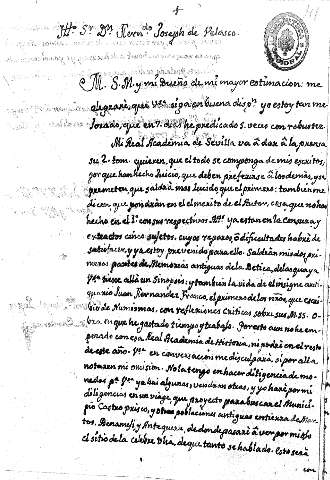 Sr. Dn. Fern.do Joseph de Velasco.
M. S. M. y mi Dueño de mi mayor estimacion: me
alegraré, que sigo en buena dis.on yo estoy tan me
jorado, que en 7 dias he predicado 5 veces con robustez.
Mi Real Academia de Sevilla va à dar à la prensa
su 2. tom. quieren, que el todo se componga de mis escritos,
por que han hecho juicio, que deben preferirse à los demás, y se
prometen, que saldrá mas lucido que el primero: tambien me
dicen, que pondràn en el el merito de el Autor, cosa que no han
hecho en el 1.o con sus respectivos. ya estan en la Censura, y
extracto cinco sujetos, cuyos reparos ò dificultades habrè de
satisfacer, y ya estoy prevenido para ello. Saldràn mis dos pri
meras partes de Memorias antiguas de la Betica, de las que ya
tiene allà un Sinopsis; y tambien la vida de el insigne anti
quario Juan Fernandez Franco, el primero de los nños. que escri
biò de Numismas, con reflexiones Criticas sobre sus M. SS. O
bra, en que he gastado tiempo y trabajo. Por esto aun no he em
pezado con esa Real Academia de Historia, ni podrè en el resto
de este año. en conversacion me disculparà, si por allà
notaren mi omision. No la tengo en hacer diligencia de mo
nedas p.a ya hai algunas, vendran otras, y yo harè por mi
diligencias en un viage, que proyecto para buscar el Munici
pio Castro prisco, y otras poblaciones antiguas en tierra de
Benamejì, y Antequera, de donde pasarè à ver por mis
el sitio de la celebre, de que tanto se ha hablado. Esto serà